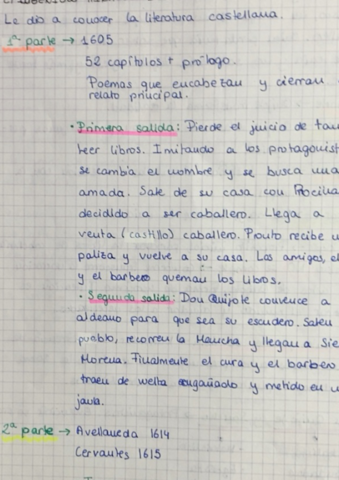 Le dio a conocer la literatura castellana.
1ª parte → 1605
52 capítulos + prólogo.
Poemas que encabezan y cierran
relato principal.
· Primera salida: Pierde el juicio de tan
leer libros. Imitando a los protagonist
se cambia el nombre y se busca una
amada. Sale de su casa con Rocina
decidido a ser caballero. Llega a
venta (castillo) caballero. Pronto recibe u
paliza y vuelve a su casa. Los amigos, el
y el barbero queman los libros.
· Segunda salida: Don Quijote convence a
aldeano para que sea su escudero. Salen
pueblo, recorren la Mancha y llegan a Sie
Morena. Finalmente el cura y el barbero
traen de vuelta engañado y metido en u
jaula.
2ª parte → Avellaneda 1614
Cervantes 1615